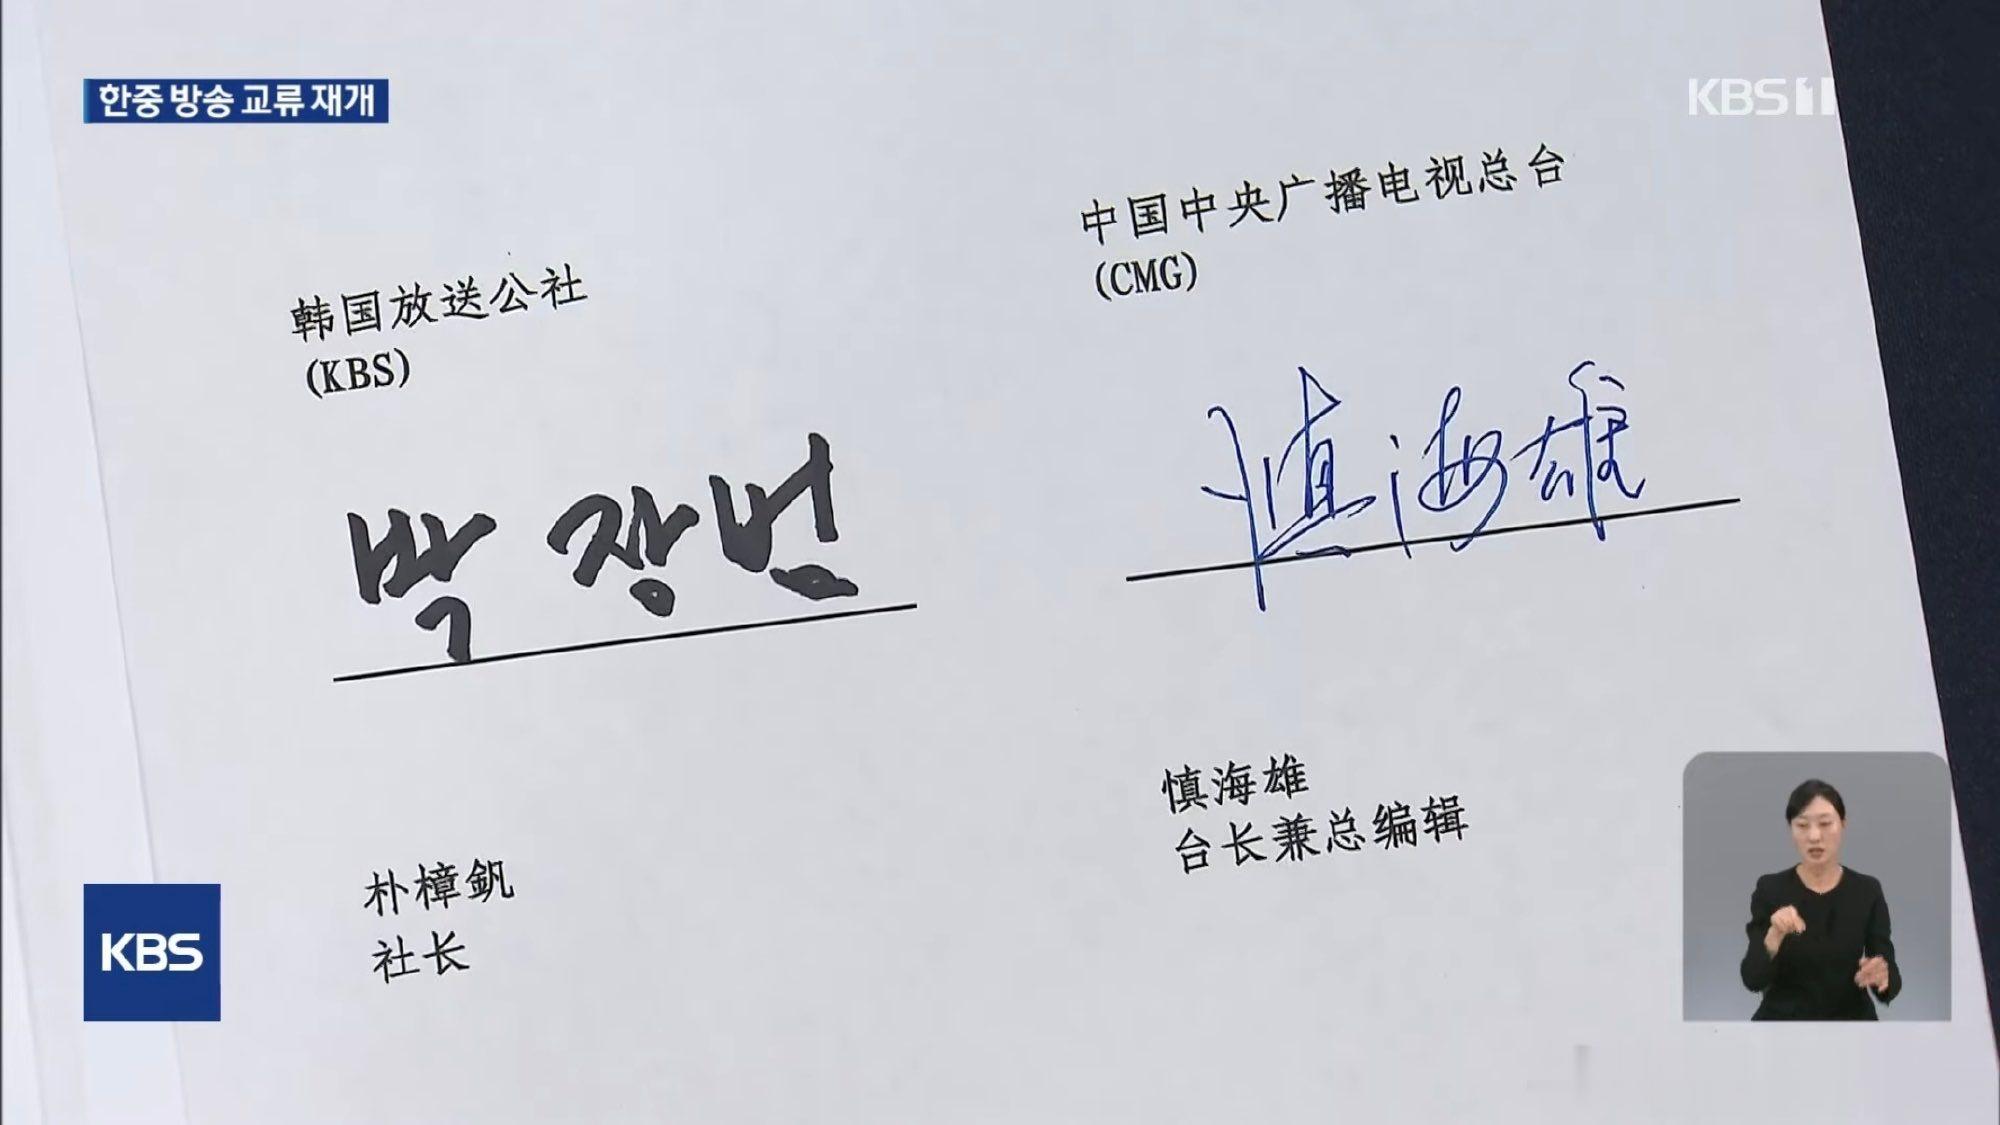 한중 방송 교류 재개
KBS 1
中国中央广播电视总台
(CMG)
韩国放送公社
(KBS)
박장범
慎海雄
慎海雄
台长兼总编辑
朴樟釩
社长
KBS